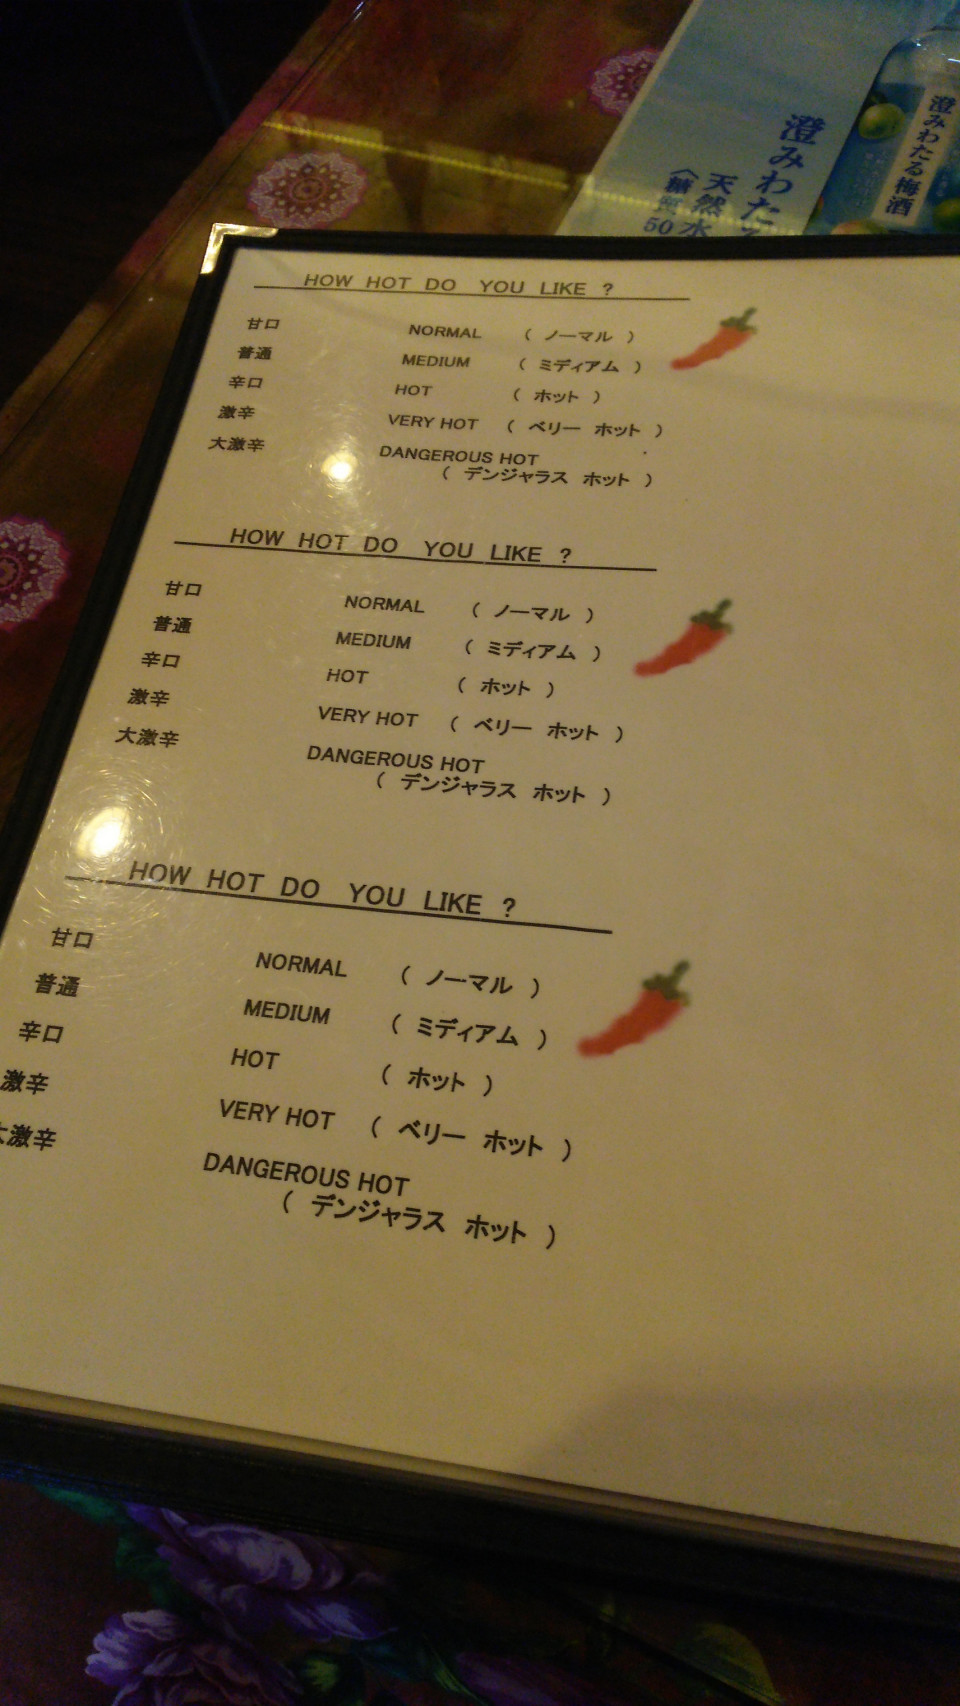 澄みわた
天然水
50
澄みわたる梅酒
HOW HOT DO YOU LIKE ?
甘口 NORMAL ( ノーマル )
普通 MEDIUM ( ミディアム )
辛口 HOT ( ホット )
激辛 VERY HOT ( ベリー ホット )
大激辛 DANGEROUS HOT
( デンジャラス ホット )
HOW HOT DO YOU LIKE ?
甘口 NORMAL ( ノーマル )
普通 MEDIUM ( ミディアム )
辛口 HOT ( ホット )
激辛 VERY HOT ( ベリー ホット )
大激辛 DANGEROUS HOT
( デンジャラス ホット )
HOW HOT DO YOU LIKE ?
甘口 NORMAL ( ノーマル )
普通 MEDIUM ( ミディアム )
辛口 HOT ( ホット )
激辛 VERY HOT ( ベリー ホット )
大激辛 DANGEROUS HOT
( デンジャラス ホット )